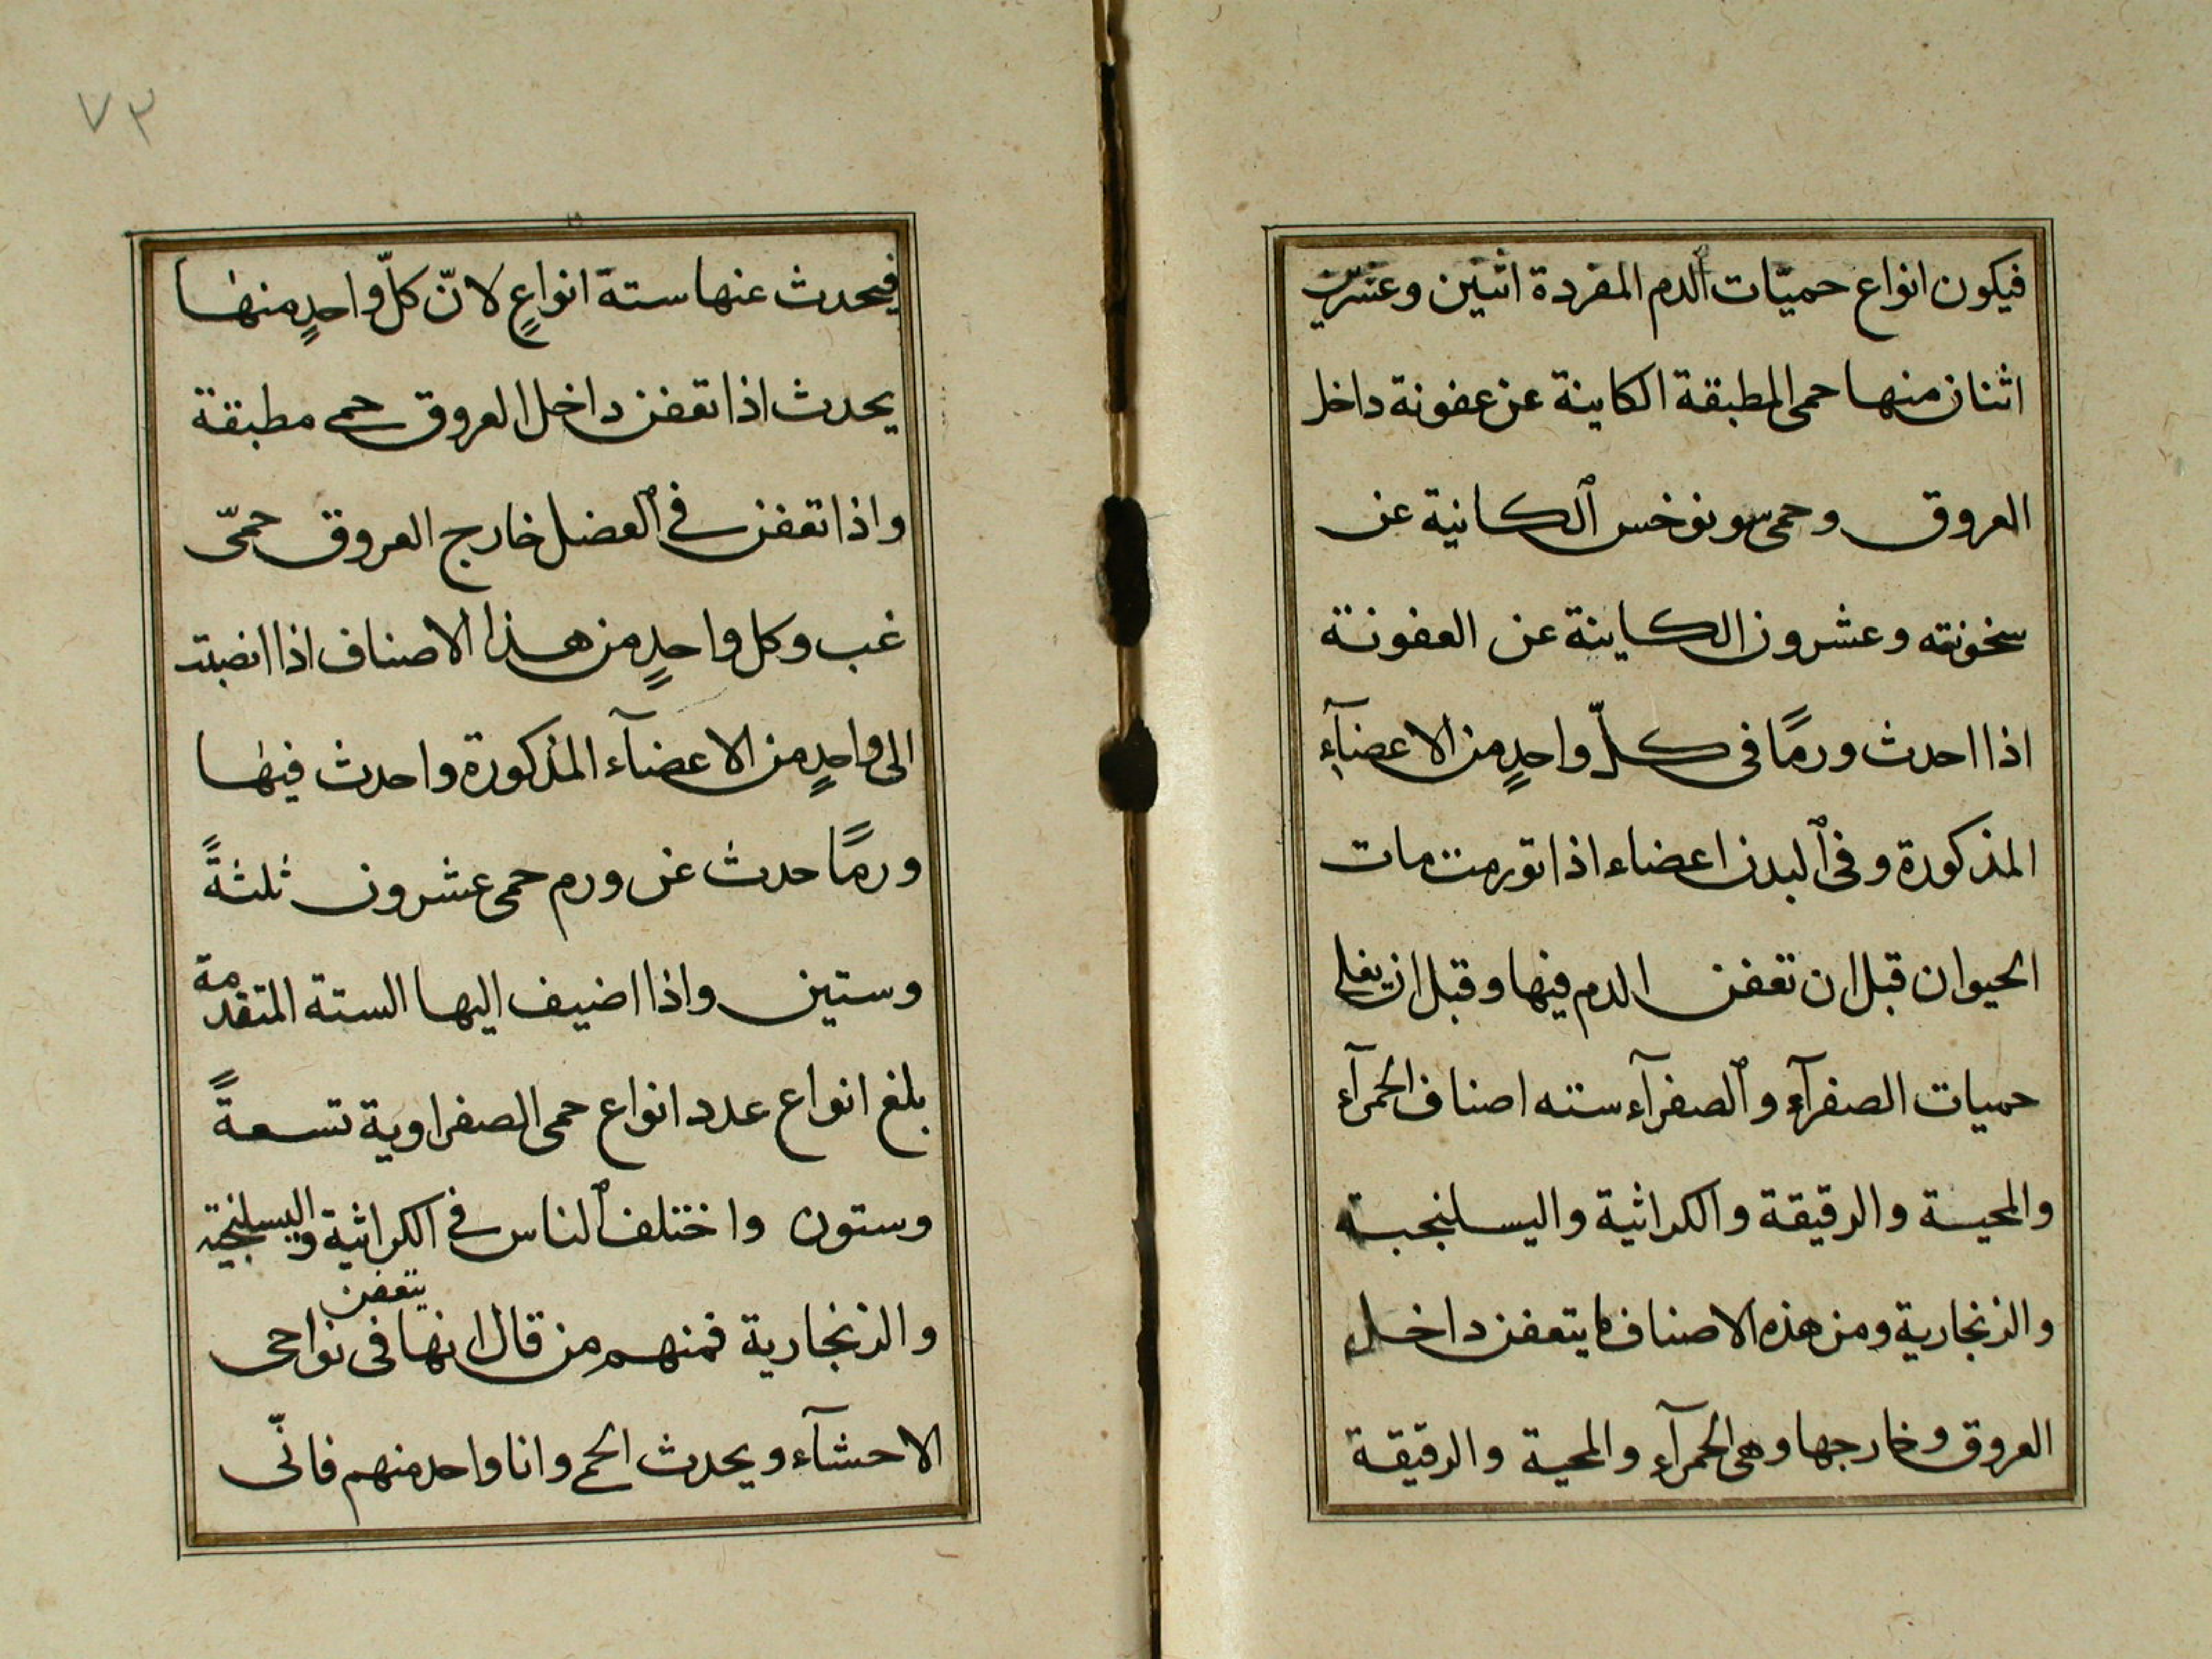 فيكون انواع حميّات الدم المفردة اثنين وعشرين
اثنان منها حمى المطبقة الكاينة عن عفونة داخل
العروق وحمى سونوخس الكانية عن
سخونته وعشرون الكاينة عن العفونة
اذا احدث ورمًا فى كلّ واحدٍ من الاعضآءِ
المذكورة وفى البدن اعضاء اذا تورمت مات
الحيوان قبل ان تعفن الدم فيها وقبل ان يغلى
حميات الصفرآءِ والصفرآء سته اصناف الحمرآء
والمحية والرقيقة والكراثية واليسلنجبية
والزنجارية ومن هذه الاصناف ما يتعفن داخل
العروق وخارجها وهى الحمرآء والمحية والرقيقة
٧٣
فيحدث عنها ستة انواعٍ لانّ كلّ واحدٍ منها
يحدث اذا تعفن داخل العروق حمى مطبقة
واذا تعفن فى العضل خارج العروق حمّى
غب وكل واحدٍ من هذا الاصناف اذا انصبت
الى واحدٍ من الاعضآء المذكورة واحدث فيها
ورمًا حدث عن ورم حمى عشرون ثلثةً
وستين واذا اضيف اليها الستة المتقدمة
بلغ انواع عدد انواع حمى الصفراوية تسعةً
وستون واختلف الناس فى الكراثية واليسلنجية
والزنجارية فمنهم من قال انها يتعفن فى نواحى
الاحشآء ويحدث الحمى وانا واحد منهم فانّى